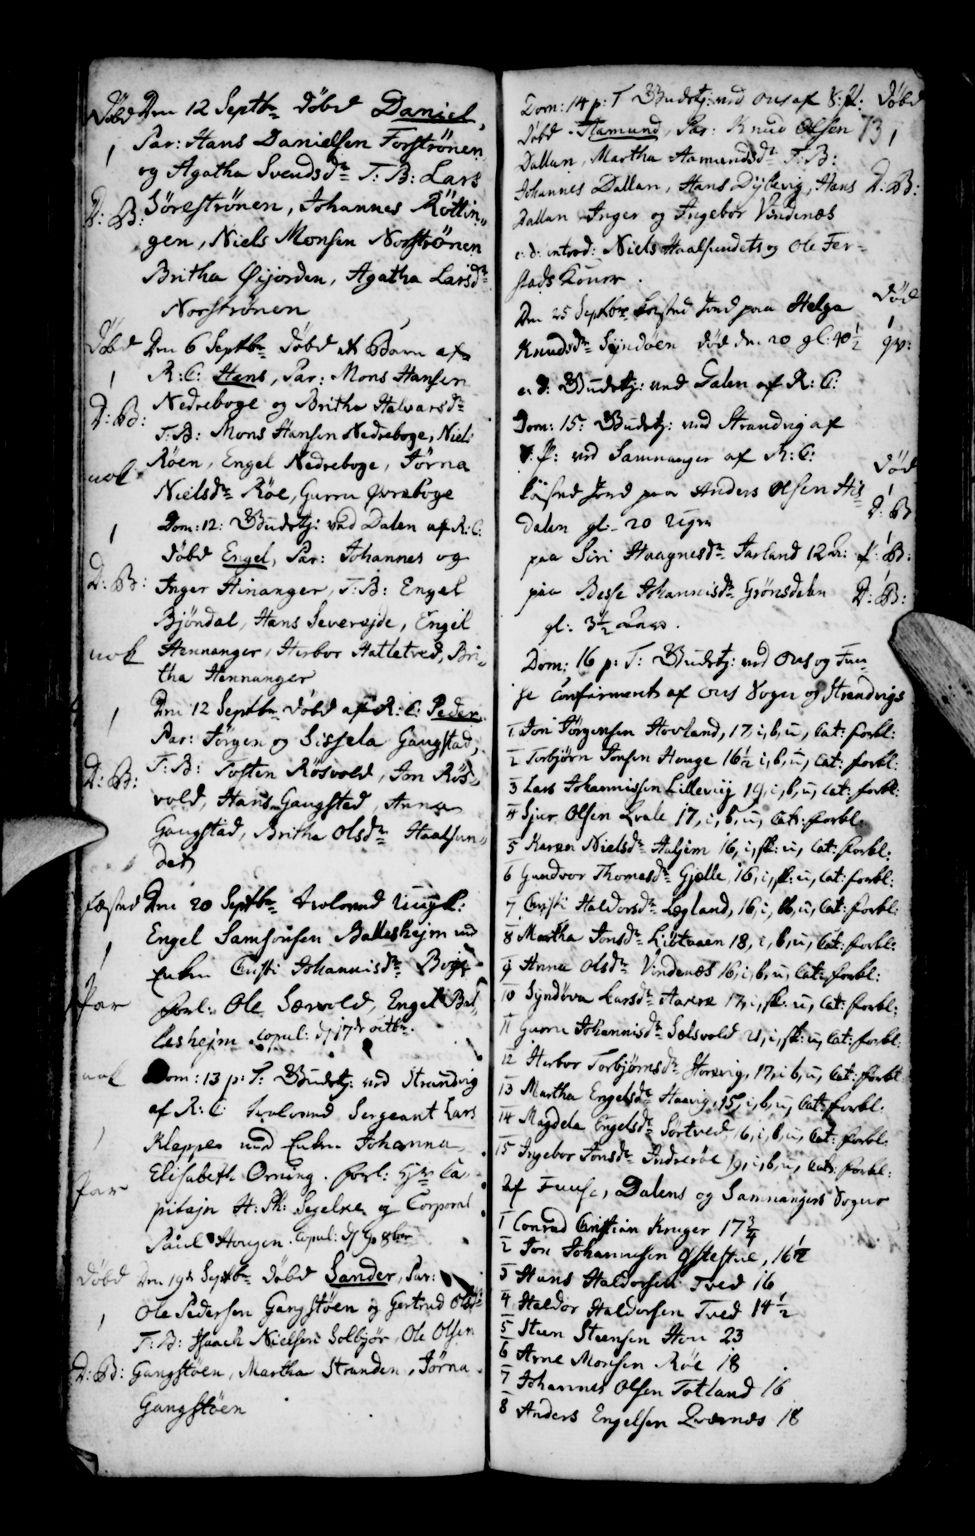 Døbd Den 12 Septbr døbd Daniel,
1 Par: Hans Danielsen Forströnen
og Agatha Svendsdr T: B: Lars
D: B: Söreströnen, Johannes Röttin-
gen, Niels Monsen Norströnen
Britha Øijorden, Agatha Larsdr
Norströnen
Døbd Den 6 Septbr døbd et Barn af
1 R: C: Hans, Par: Mons Hansen
D: B: Nedreboge og Britha Halvarsdr
T: B: Mons Hansen Nedreboge, Niels
nok Röen, Engel Nedreboge, Törna
Nielsdr Röe, Gurru Øvreboge
1 Dom: 12: Gudstj: ved Dalen af R: C:
døbd Engel, Par: Johannes og
D: B: Inger Hinanger, T: B: Engel
Bjöndal, Hans Severejde, Engel
nok Hennanger, Herbor Hatletved, Bri-
tha Hennanger
1 Den 12 Septbr døbd af R: C: Peder
Par: Törgen og Sissela Gangstad,
D: B: T: B: Tosten Rösvold, Jon Rös-
vold, Hans Gangstad, Anna
Gangstad, Britha Olsdr Haalsun-
det
Fæsted Den 20 Septbr troloved Ungk:
1 Engel Samsonsen Balleshejm med
Enken Cristi Johannisdr
Par forl: Ole Sævold, Engel Bal-
leshejm copul: d: 17de octbr
nok Dom: 13 p: T: Gudstj: ved Strandvig
1 af R: C: troloved Sergeant Lars
Kleppe med Enken Johanna
Par Elisabeth Orning. forl: Hr Ca-
pitajn H: Ph: Segelcke og Corporal
Paul Hougen. Copul:
Døbd Den 19de Septbr døbd Sander, Par:
1 Ole Pedersen Gangstöen og Gertrud Olsdr
T: B: Isaach Nielsen Solbjör, Ole Olsen
D: B: Gangstöen, Martha Stranden, Törna
Gangstöen
Dom: 14 p: T Gudstj: ved Ous af V: P: Døbd
Døbd Hamund, Par: Knud Olsen 73 1
Dallan, Martha Aamundsdr T: B:
Johannes Dallan, Hans Dyvevig, Hans D: B:
Dallan Inger og Ingebor Vindenæs
e: d: introd: Niels Haalsundets og Ole Fer-
stads Koner.
Den 25 Septbr kasted Jord paa Helga Død
Knudsdr Sundöen død den 20 gl: 40 1/2 1 qv:
e: d: Gudstj: ved Dalen af R: C:
Dom: 15: Gudstj: ved Strandvig af
V: P: ved Samnanger af R: C:
kasted Jord paa Anders Olsen His Død 1
dalen gl- 20 Uger D: B
paa Siri Haagnesdr Tarland 12 D: B:
paa Besse Johannisdr Grönsdalen D: B:
gl: 3 1/2 Aar.
Dom: 16 p: T: Gudstj: ved Ous og Fuu-
se Confirmerets af Ous Sogn og Strandvigs
1 Jon Jörgensen Hovland, 17, i, b, u, Cat: forkl:
2 Torbjörn Jonsen Houge 16 1/2 i, b, u, Cat: forkl:
3 Lars Johannissen Lillevig 19, i, b, u, Cat: forkl:
4 Sjur Olsen Qvale 17, i, b, u, Cat: forkl
5 Karen Nielsdr Haljem 16, i, sk: u, Cat: forkl:
6 Gundvor Thomesdr Gjelle, 16, i, sk: u, Cat: forkl:
7 Cristi Haldorsdr Lægland, 16, i, sk, u, Cat: forkl:
8 Martha Jonsdr Lillevaaen 18, i, b, u, Cat: forkl:
9 Anna Olsdr Vindenæs 16, i, b, u, Cat: forkl:
10 Syndöva Larsdr Aarene 17, i, sk: u, Cat: forkl:
11 Guoru Johannisdr Sælsvold 21, i, sk: u, Cat: forkl:
12 Herbor Torbjörnsdr Storevig, 17, i b, u, Cat: forkl
13 Martha Engelsdr Haavig, 15, i, b, u, Cat: forkl:
14 Magdela Engelsdr Sörtved 16, i, b, u, Cat: forkl:
15 Ingebor Jonsdr Indreröe 19, i, b, u, Cat: forkl:
Af Fuuse, Dalens og Samnangers Sogne
1 Conrad Cristian Kruger 17 3/4
2 Jon Johannesen Øfstestue, 16 1/2
3 Hans Haldorsen Tved 16
4 Haldor Haldorsen Tved 14 1/2
5 Steen Steensen Hou 23
6 Arne Monsen Röe 18
7 Johannes Olsen Totland 16
8 Anders Engelsen Qværnæs 18